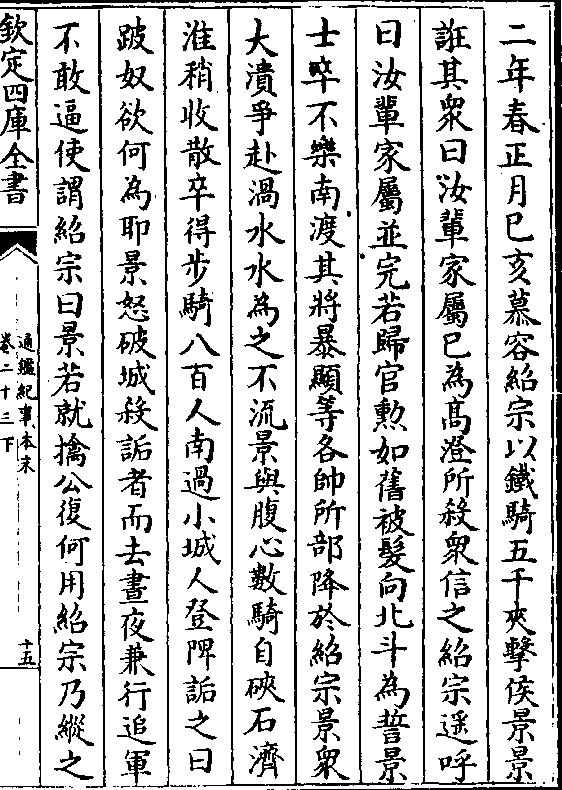 二年春正月己亥慕容紹宗以鐵騎五千夾擊侯景景
誑其衆曰汝輩家屬已為高澄所殺衆信之紹宗遥呼
曰汝輩家屬並完若歸官勲如舊被髮向北斗為誓景
士卒不樂南渡其將暴顯等各帥所部降於紹宗景衆
大潰爭赴渦水水為之不流景與腹心數騎自硤石濟
淮稍收散卒得步騎八百人南過小城人登陴詬之曰
跛奴欲何為耶景怒破城殺詬者而去晝夜兼行追軍
不敢逼使謂紹宗曰景若就擒公復何用紹宗乃縱之
欽定四庫全書
通鑑紀事本末
卷二十三下
十五